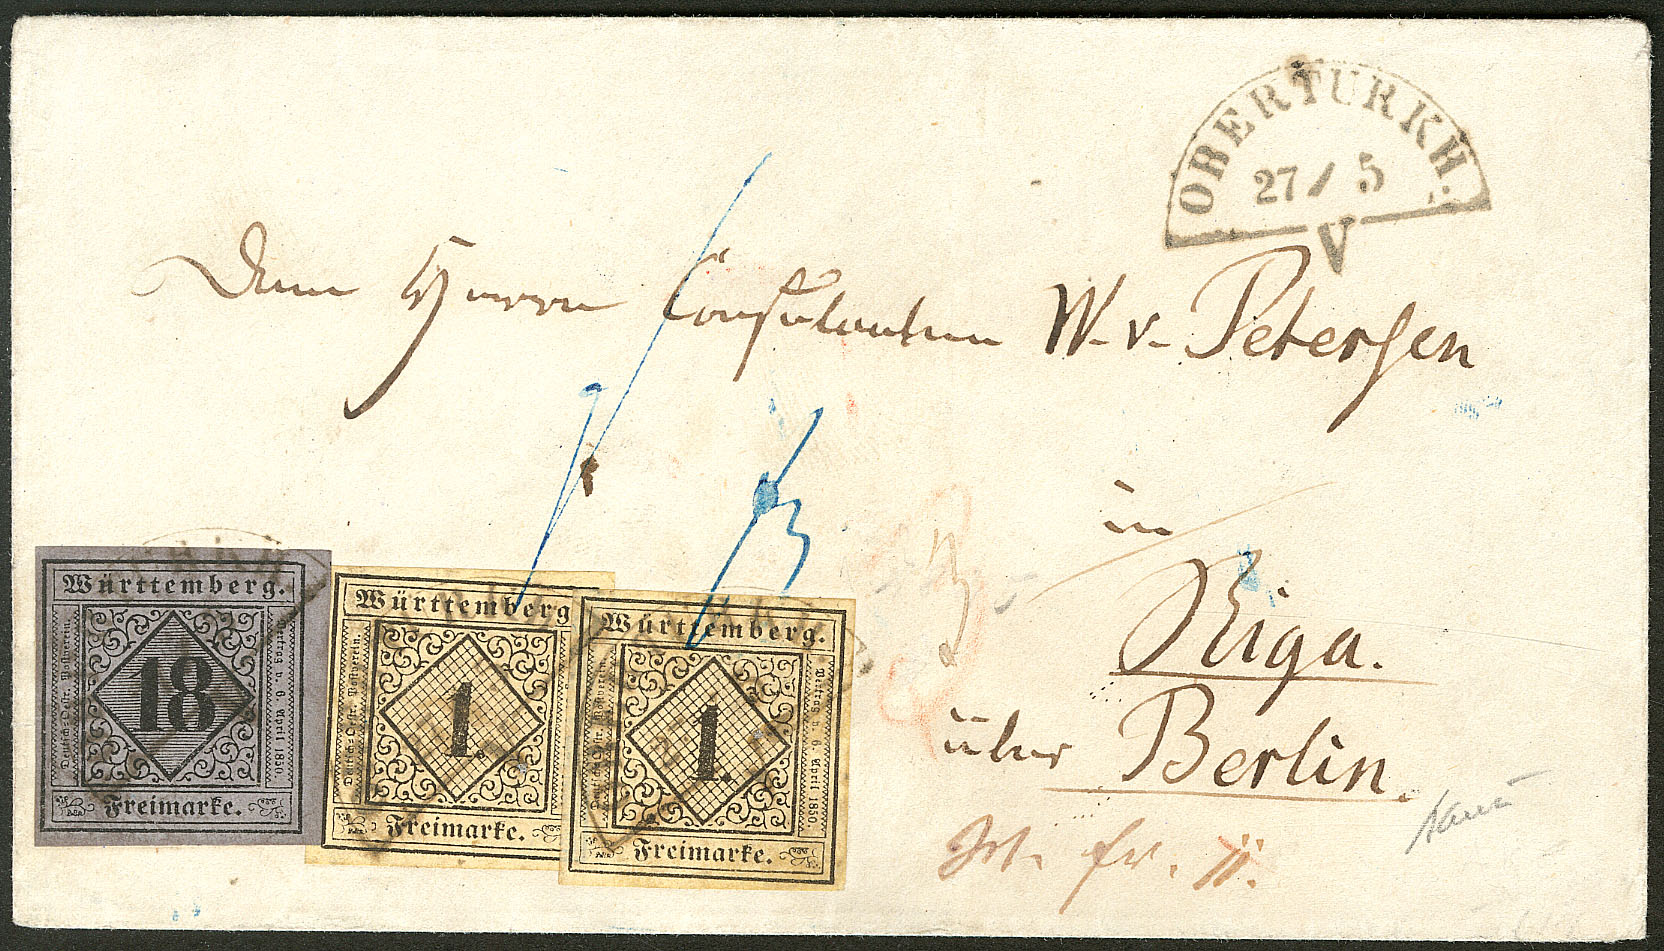 OBERTÜRKH.
27 / 5
V
Dem Herrn Consulenten W. v. Petersen
in
Riga.
über Berlin.
fr.
Württemberg.
Deutsch-Oestr. Postverein.
18
Vertrag v. 6. April 1850.
Freimarke.
Württemberg
Deutsch-Oestr. Postverein.
1.
Freimarke.
Württemberg.
Deutsch-Oestr. Postverein.
1.
Vertrag v. 6. April 1850.
Freimarke.